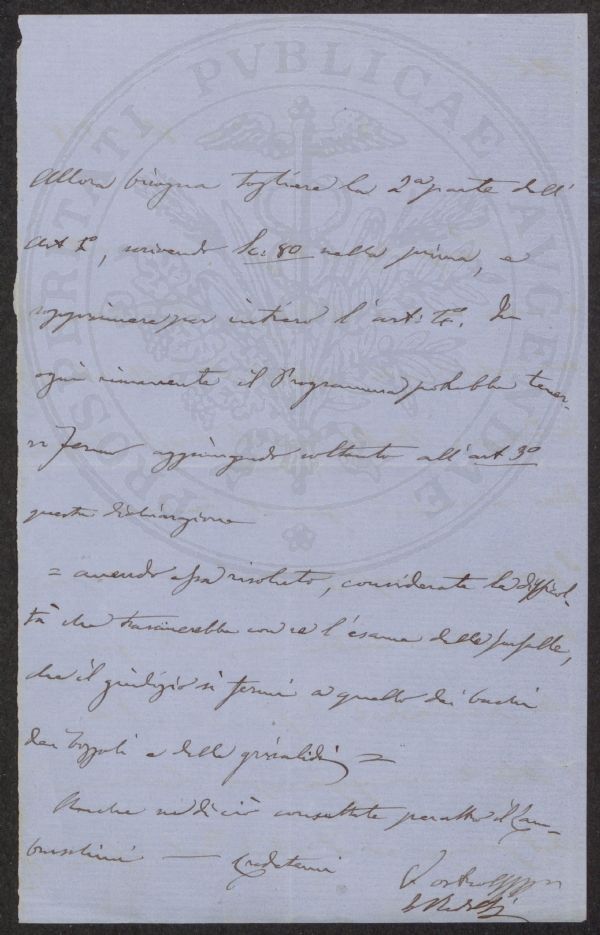 PROSPERITATI PVBLICAE AVGENDAE
Allora bisogna togliere la 2ª parte dell'
Art 1º, scrivendo sc: 80 nella prima, e
sopprimere per intiero l'art: 4º. In
ogni rimanente il Programma potrebbe tener-
si fermo aggiungendo soltanto all'art 3º
questa dichiarazione
= avendo essa risoluto, considerata la difficol-
tà che trascinerebbe con se l'esame delle farfalle,
che il giudizio si fermi a quello dei bachi
dei bozzoli e delle grisalidi =
Anche su di ciò consultate peraltro il Cam-
brusolini — Credetemi